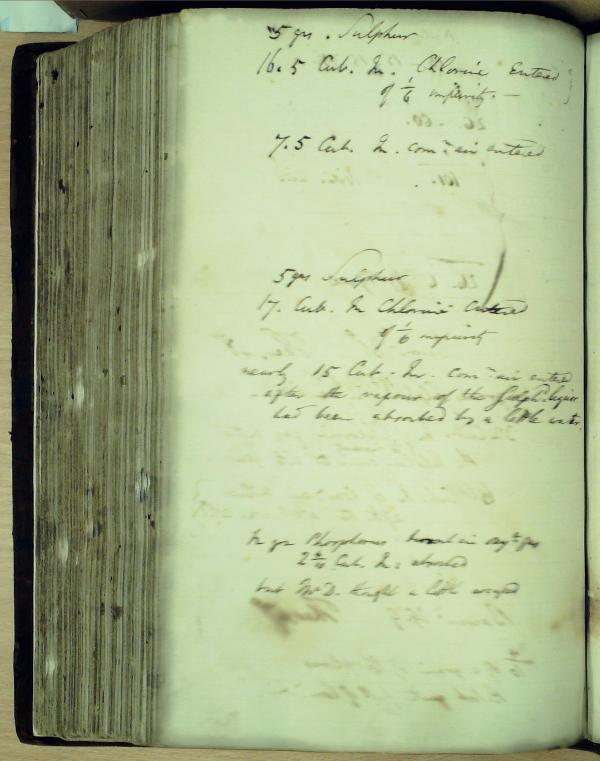 5 grs. Sulphur
16.5 Cub. In. Chlorine Entered
of 1/6 impurity. —
7.5 Cub. In. com:n air entered
5 grs Sulphur
17. Cub. In Chlorine Entered
of 1/6 impurity
nearly 15 Cub. In. com:n air entered
after the vapour of the Sulph: liquor
had been absorbed by a little water.
gr Phosphorus burnt in oxy:n gas
Cub. In: absorbed
but Mr D. thought a little escaped